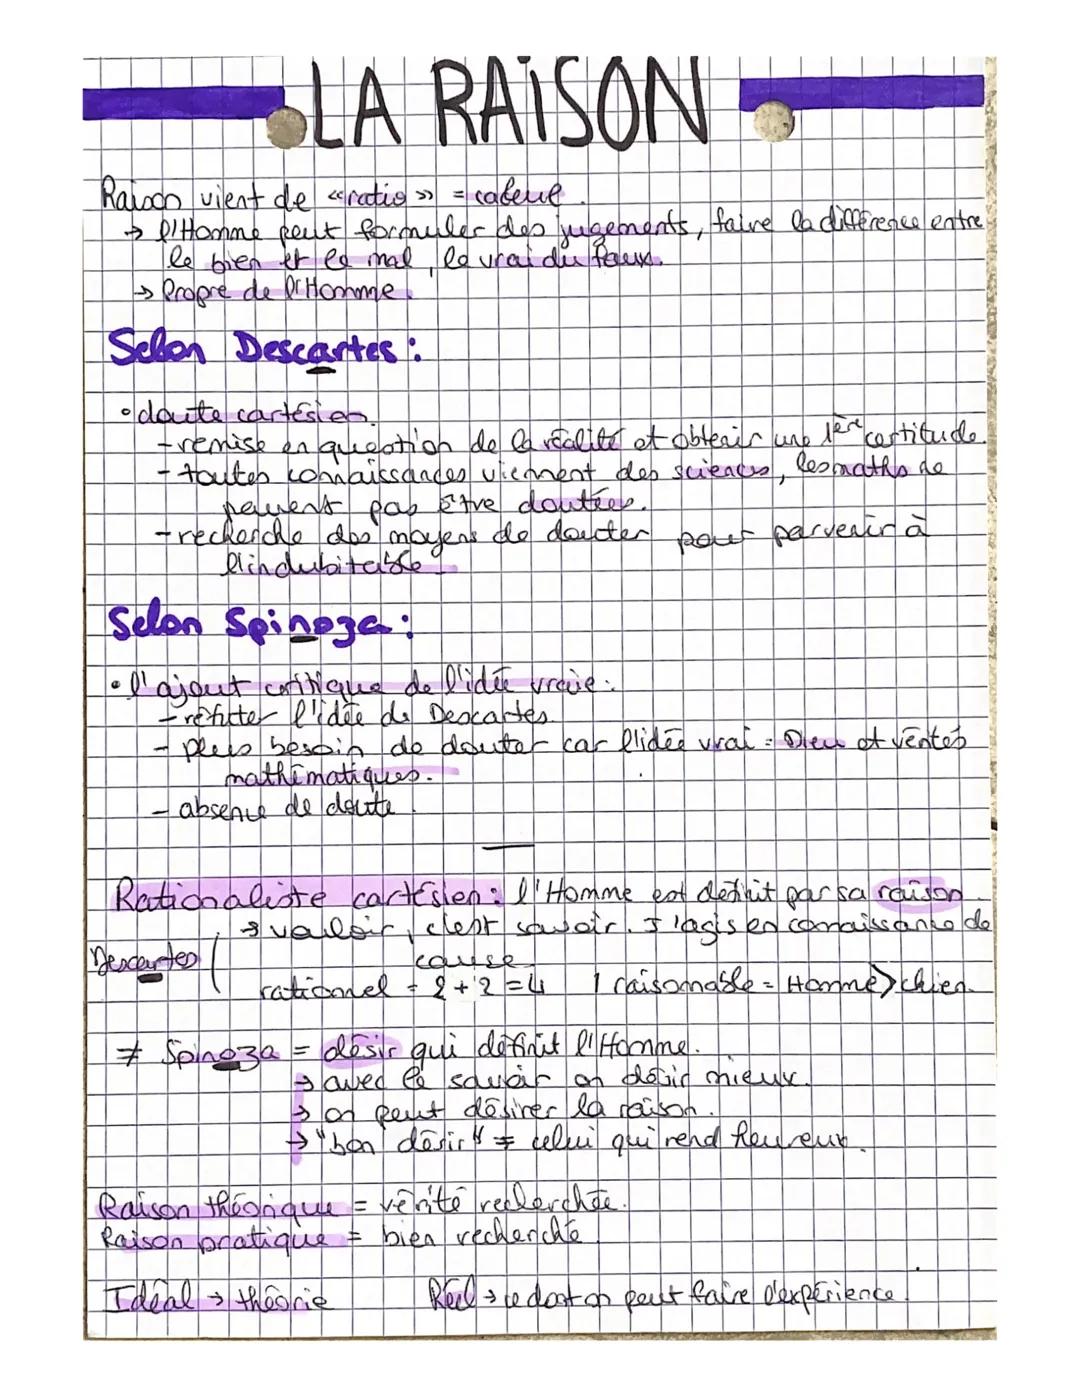 LA RAISON
Raison vient de «ratio» = calcul.
→ l'Homme peut formuler des jugements, faire la différence entre
le bien et le mal, le vrai du faux.
→ Propre de l'Homme.
Selon Descartes :
• doute cartésien.
- remise en question de la réalité et obtenir une 1ère certitude.
- toutes connaissances viennent des sciences, les maths ne
peuvent pas être doutées.
- recherche des moyens de douter pour parvenir à
l'indubitable
Selon Spinoza :
• l'ajout critique de l'idée vraie :
- réfuter l'idée de Descartes.
- plus besoin de douter car l'idée vrai = Dieu et vérités
mathématiques.
- absence de doute.
Rationaliste cartésien : l'Homme est définit par sa raison.
→ vouloir, c'est savoir. J'agis en connaissance de
Descartes cause.
rationnel = 2+2=4 / raisonnable = Homme > chien.
≠ Spinoza = désir qui définit l'Homme.
→ avec le savoir on désir mieux.
→ on peut désirer la raison.
→ "bon désir" = celui qui rend heureux.
Raison théorique = vérité recherchée.
Raison pratique = bien recherché
Idéal → théorie Réel → ce dont on peut faire l'expérience.